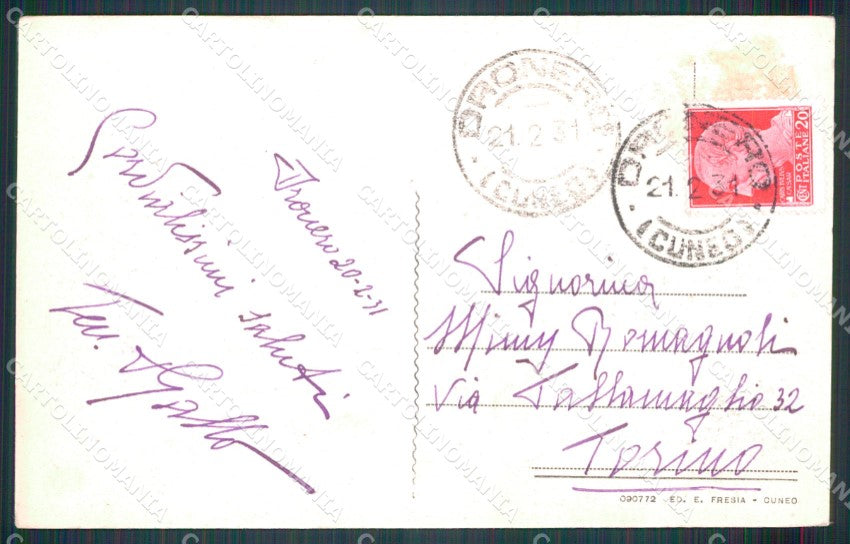 Dronero 20-2-31
Gentilissimi
saluti
DRONERO
21.2.31
(CUNEO)
DRONERO
21.2.31
(CUNEO)
POSTE
ITALIANE
20
CENT
CESARE
Signorina
Mimy Romagnoli
Via Passamaglio 32
Torino
090772 ED. E. FRESIA - CUNEO
CARTOLINOMANIA